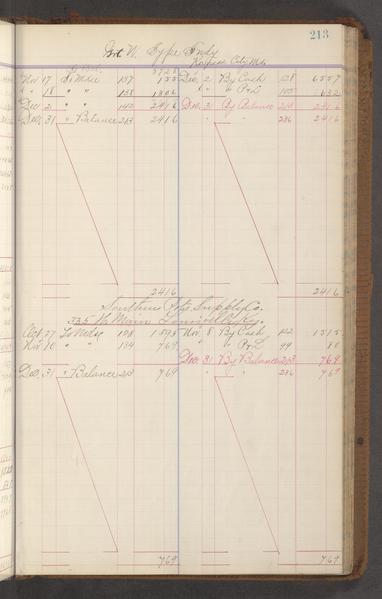 213
Grt. W. Type Fndy
Kansas City Mo.
Nov 17 To Mdse 137 Dec. 2 By Cash 128 6557
" 18 " " 138 1306 " " " P&L 632
Dec 2 " " 142 2416 Dec. 31 By Balance 213 2416
Dec. 31 " Balance 213 2416 " " 236 2416
2416 2416
Southern Supply Co.
Main Louisville Ky.
Oct 27 To Mdse 1593 Nov. 8 By Cash 122 1515
Nov 10 " " 134 769 " " P&L 99 81
Dec 31 By Balance 213 769
Dec. 31 " Balance 213 769 " " 236 769
769 769